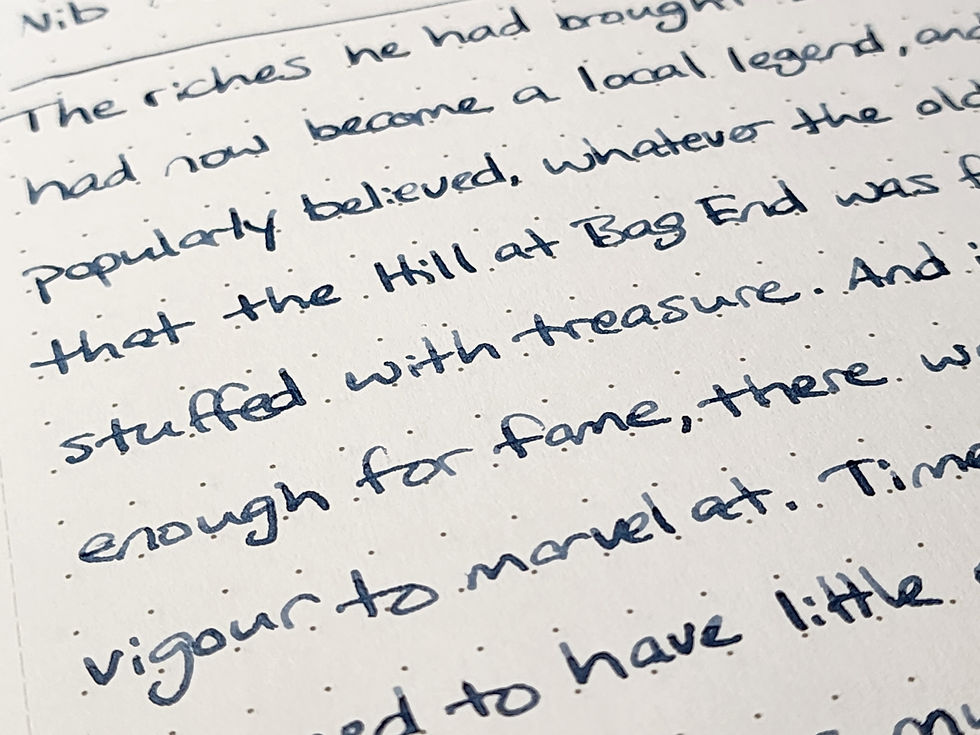 Nib
The riches he had brough
had now become a local legend, and
popularly believed, whatever the old
that the Hill at Bag End was f
stuffed with treasure. And i
enough for fame, there w
vigour to marvel at. Time
ed to have little